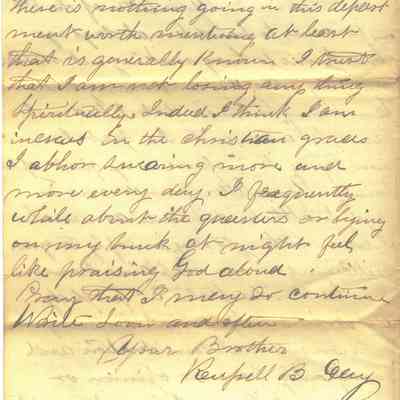 there is nothing going in this depart
ment worth mentioning at least
that is generally known I trust
that I am not losing any thing
Spiritually. Indeed I think I am
in the christian graces
I abhor swearing more and
more every day. I frequently
while about the quarters or lying
on my bunk at night feel
like praising God aloud.
Pray that I may so continue
Write Soon and often
Your Brother
Russell B